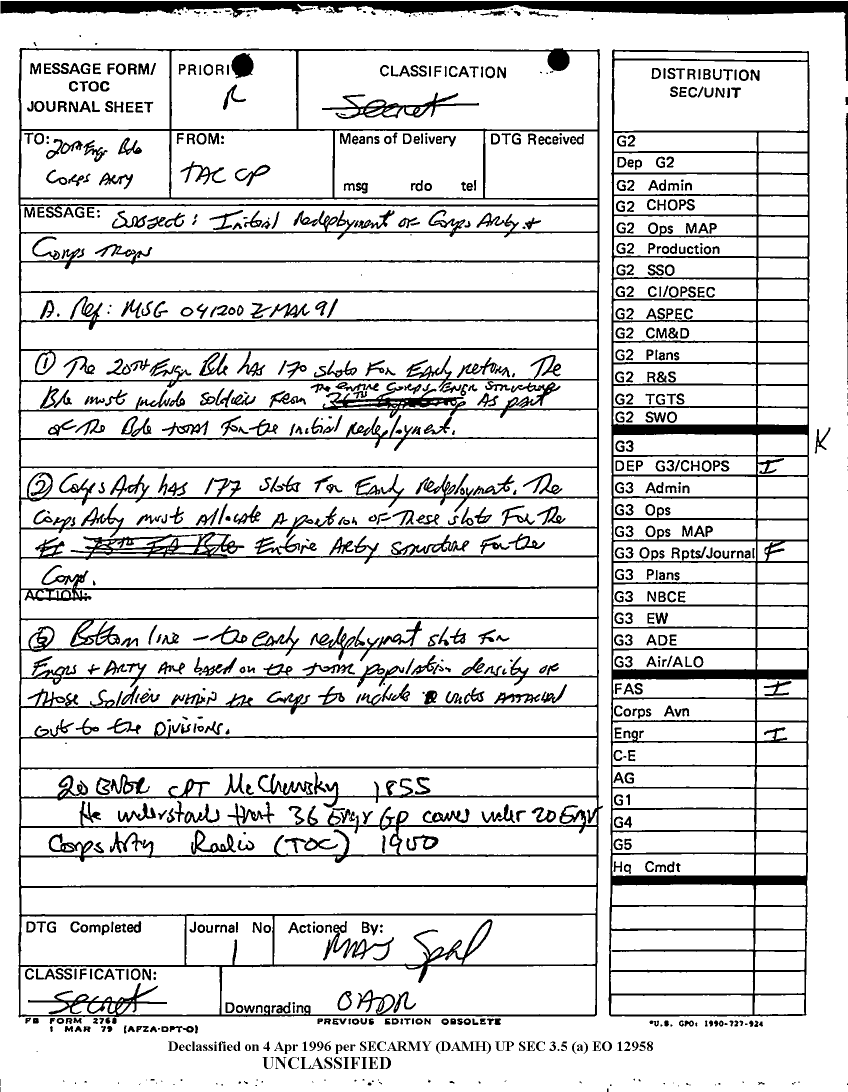 MESSAGE FORM/
CTOC
JOURNAL SHEET
PRIORI
R
CLASSIFICATION
Secret
TO: 20th Engr Bde
Corps Arty
FROM:
TAC CP
Means of Delivery
msg rdo tel
DTG Received
MESSAGE: Subject: Initial Redeployment of Corps Arty +
Corps Troops
A. Ref: MSG 041200 Z MAR 91
① The 20th Engr Bde has 170 slots for early return. The
Bde must include soldiers from the entire Corps Engr structure as part
of the Bde total for the initial redeployment.
② Corps Arty has 177 slots for early redeployment. The
Corps Arty must allocate a portion of these slots for the
75th FA Bde Entire Arty structure for the
Corps.
ACTION:
③ Bottom line - the early redeployment slots for
Engrs + Arty are based on the total population density of
those soldiers within the Corps to include units attached
out to the Divisions.
20 ENGR CPT 1855
He understands that 36 Engr Gp comes under 20 Engr
Corps Arty Radio (TOC) 1900
DTG Completed
Journal No.
1
Actioned By:
MAJ
CLASSIFICATION:
Secret
Downgrading OADR
FB FORM 2768
1 MAR 79 (AFZA-DPT-O)
PREVIOUS EDITION OBSOLETE
DISTRIBUTION
SEC/UNIT
G2
Dep G2
G2 Admin
G2 CHOPS
G2 Ops MAP
G2 Production
G2 SSO
G2 CI/OPSEC
G2 ASPEC
G2 CM&D
G2 Plans
G2 R&S
G2 TGTS
G2 SWO
G3
K
DEP G3/CHOPS I
G3 Admin
G3 Ops
G3 Ops MAP
G3 Ops Rpts/Journal F
G3 Plans
G3 NBCE
G3 EW
G3 ADE
G3 Air/ALO
FAS I
Corps Avn
Engr I
C-E
AG
G1
G4
G5
Hq Cmdt
*U.S. GPO: 1990-727-924
Declassified on 4 Apr 1996 per SECARMY (DAMH) UP SEC 3.5 (a) EO 12958
UNCLASSIFIED